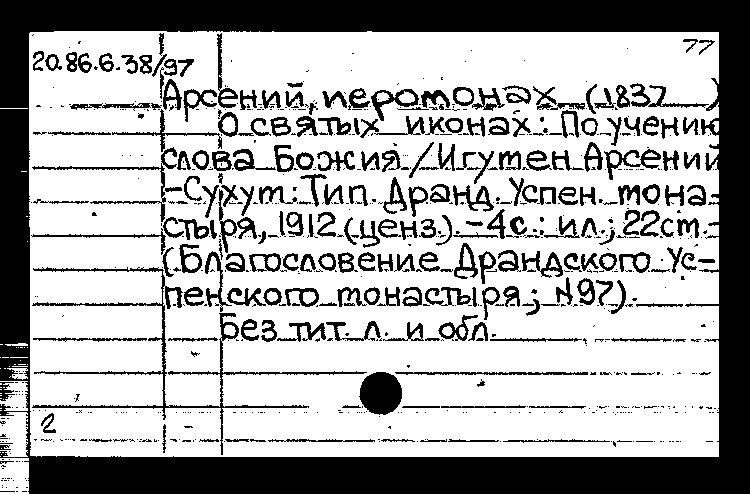 77
20.86.6.38/97
Арсений, иеромонах (1837 )
О святых иконах: По учению
слова Божия / Игумен Арсений
-Сухум: Тип. Дранд. Успен. мона-
стыря, 1912 (ценз.). -4с.: ил.; 22см.-
(Благословение Драндского Ус-
пенского монастыря; №97).
Без тит. л. и обл.
2